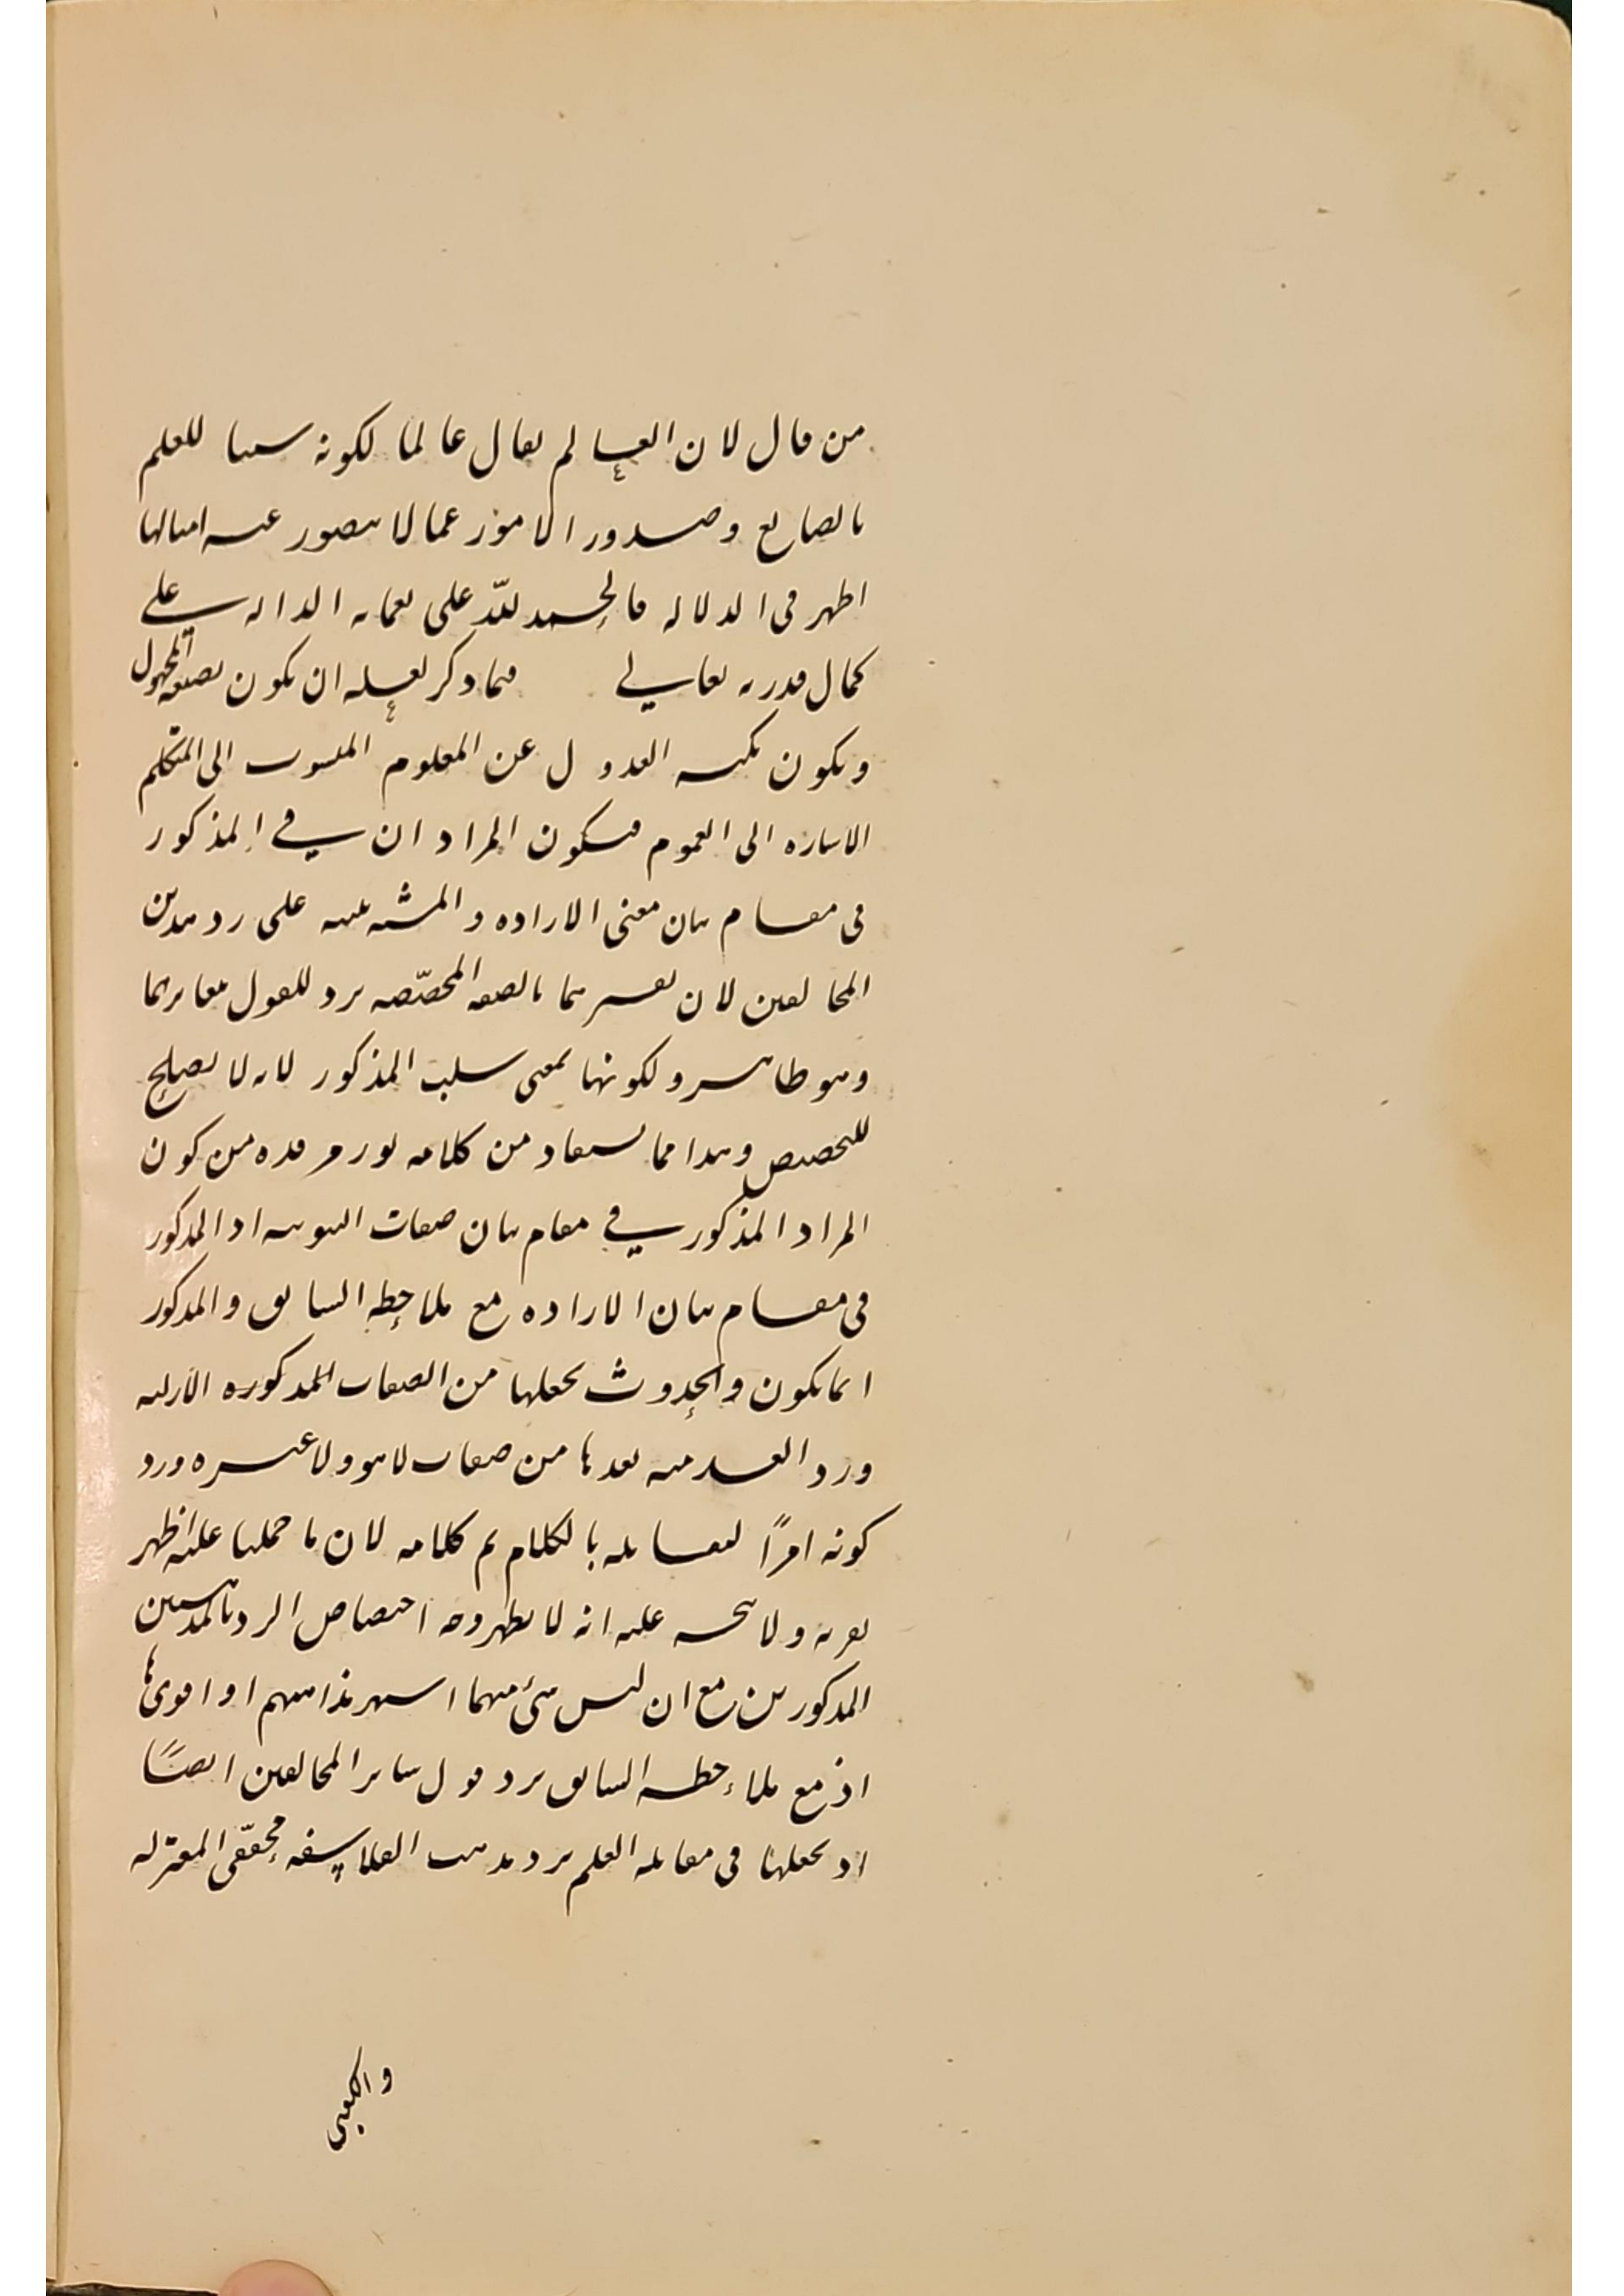 من قال لان العالم يقال عالما لكونه سببا للعلم
بالصانع وصدور الامور عما لا يتصور عنه امثالها
اظهر فى الدلالة فالحمد لله على نعمائه الدالة على
كمال قدرته تعالى فيما ذكر لعله ان يكون بصيغة المجهول
ويكون نكتة العدول عن المعلوم المنسوب الى المتكلم
الاشارة الى العموم فيكون المراد ان فى المذكور
فى مقام بيان معنى الارادة والمشية تنبيه على رد مذهبين
المخالفين لان تفسيرهما بالصفة المخصصة يرد للقول بتغايرهما
وهو ظاهر ولكونها بمعنى سلب المذكور لانه لا يصلح
للتخصيص وهذا مما يستفاد من كلامه نور مرقده من كون
المراد المذكور فى مقام بيان صفات الثبوتية اذ المذكور
فى مقام بيان الارادة مع ملاحظة السابق والمذكور
انما يكون والحدوث بجعلها من الصفات المذكورة الازلية
ورد بعدها من صفات لا هو ولا غيره ورد
كونه امرًا لمقابلته بالكلام تم كلامه لان ما حملنا عليه اظهر
ولا يتجه عليه انه لا يظهر وجه اختصاص الرد بالمذهبين
المذكورين مع ان ليس شئ منهما اشهر مذاهبهم او اقويها
اذ مع ملاحظة السابق يرد قول سائر المخالفين ايضًا
اذ بجعلها فى مقابلة العلم يرد مذهب الفلاسفة محققى المعتزلة
والكعبى